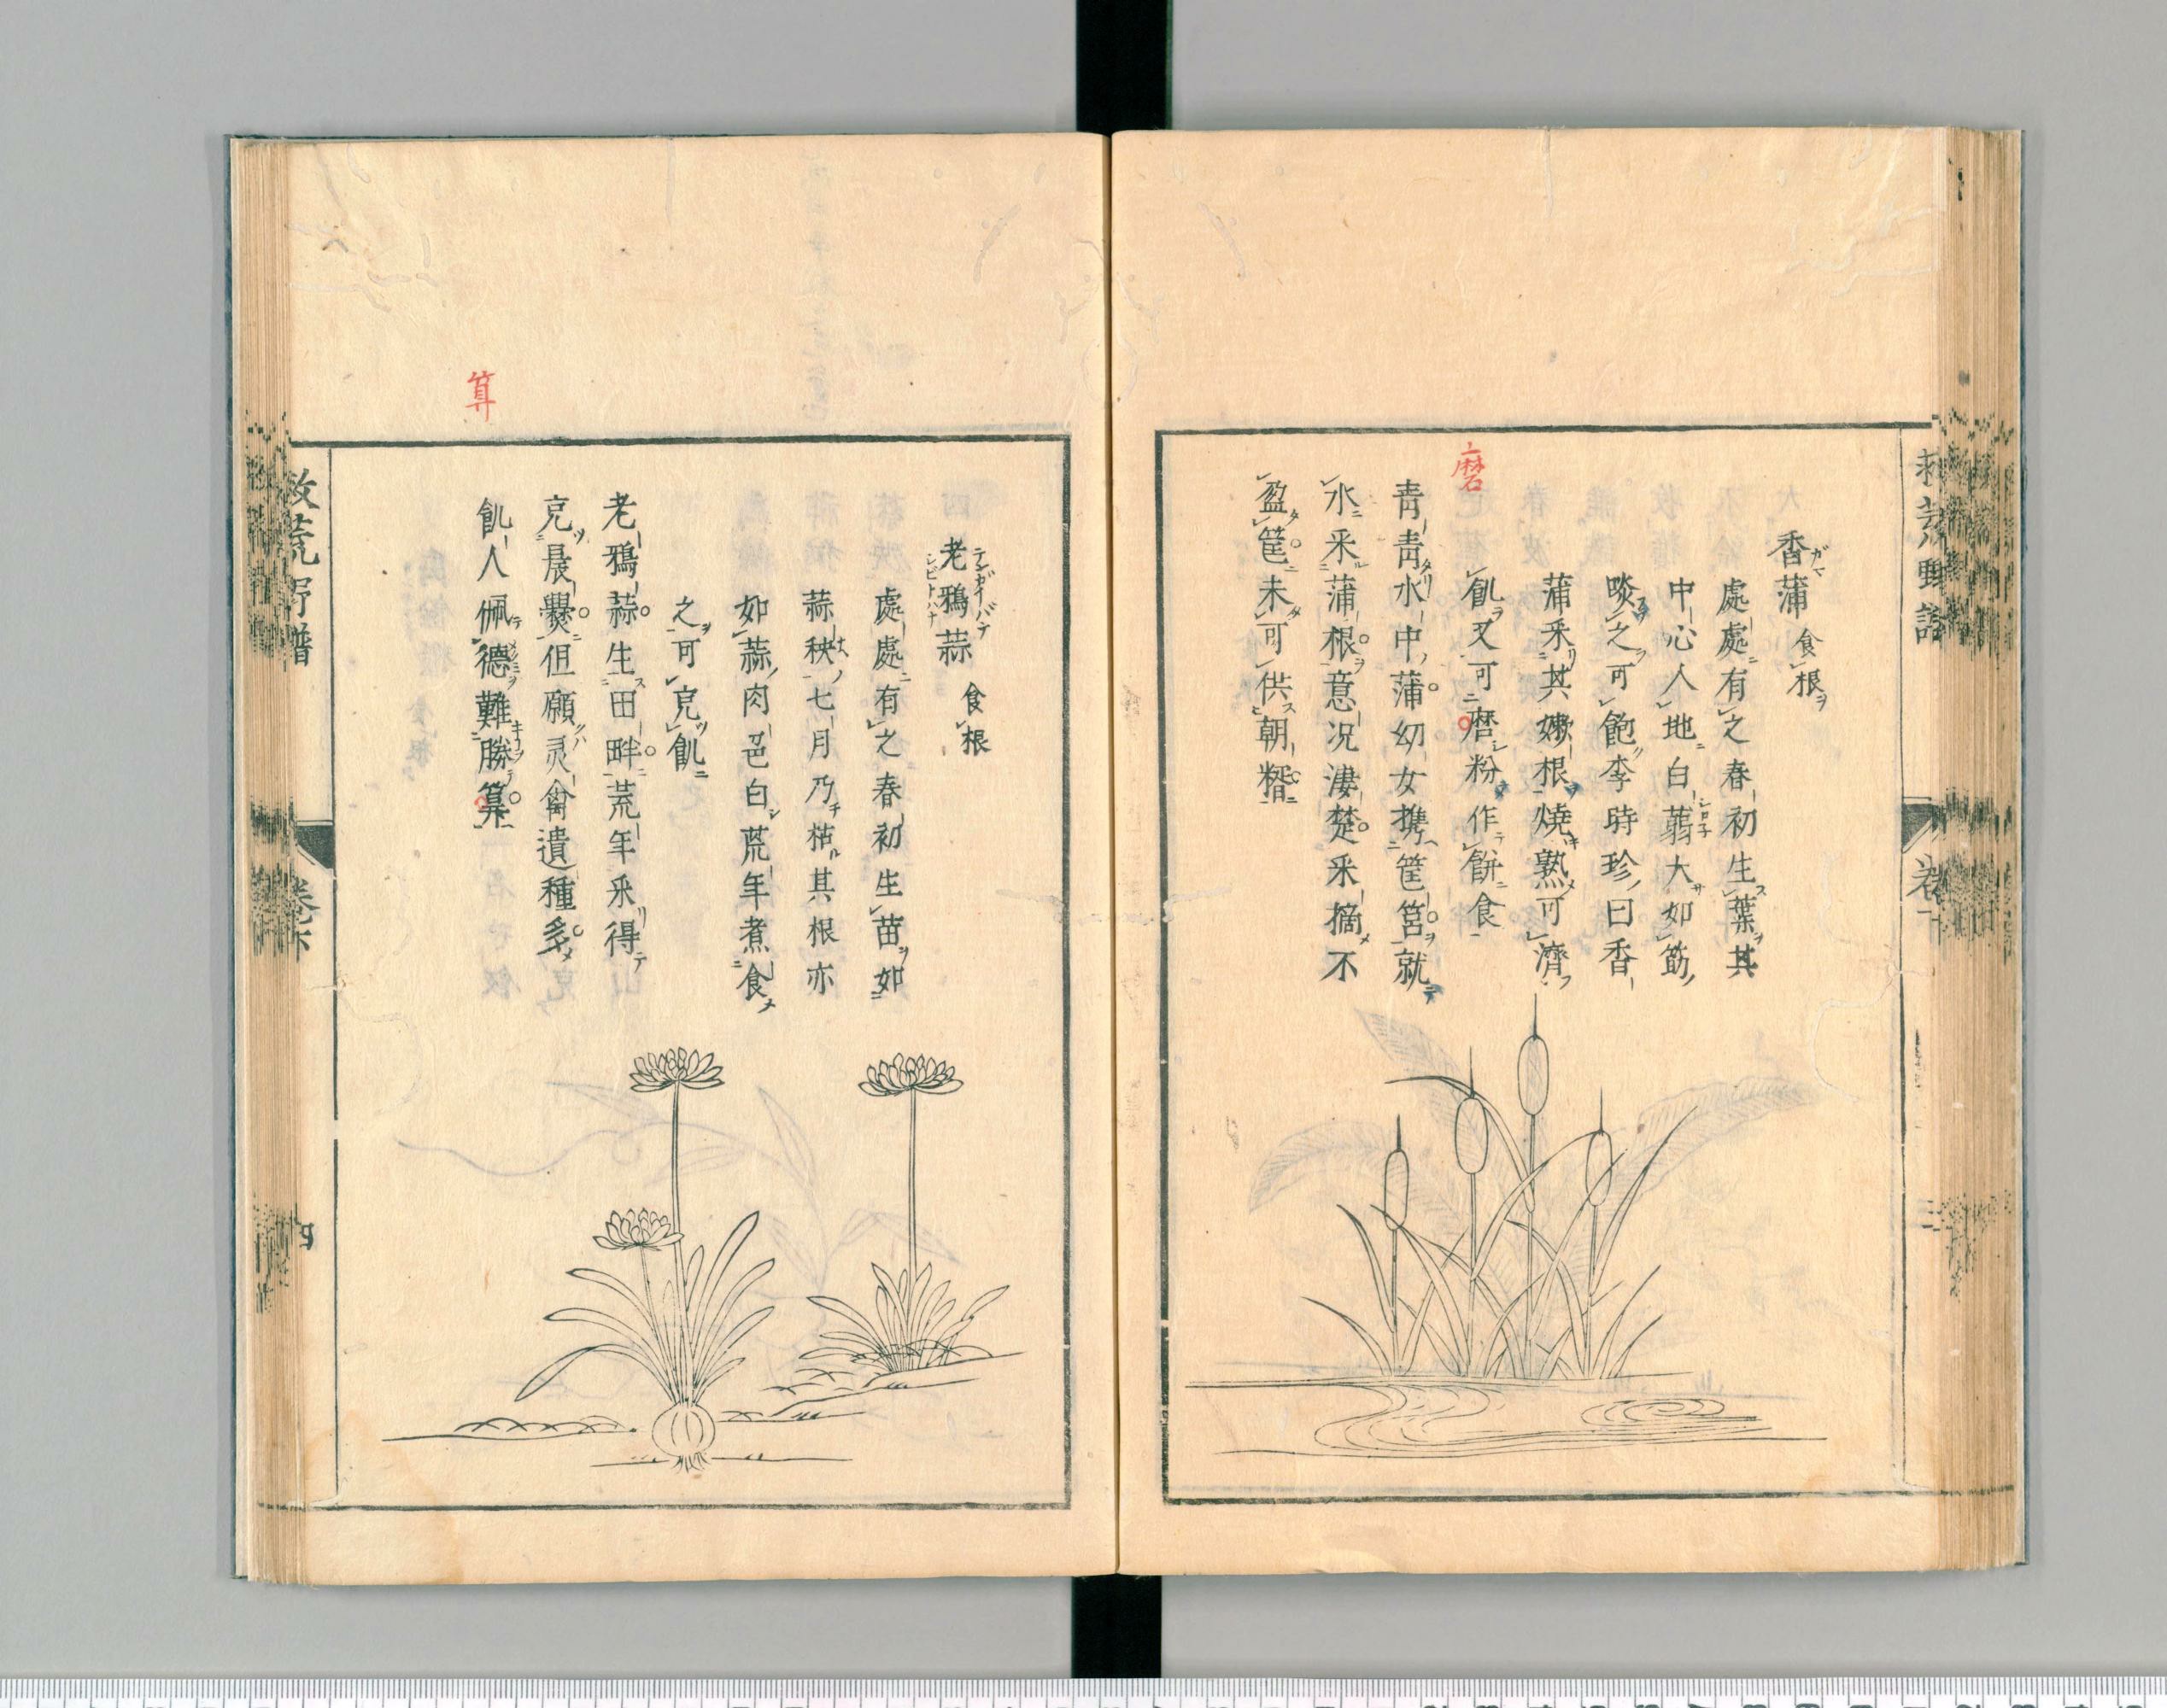 磨
香蒲 食根
處處有之春初生葉其
中心人地白蒻大如筯
啖之可飽李時珍曰香
蒲采其嫩根燒熟可濟
飢又可磨粉作餅食
青青水中蒲幼女携筐筥就
水采蒲根意况淒楚采摘不
盈筐未可供朝糈
算
老鴉蒜 食根
處處有之春初生苗如
蒜秧七月乃枯其根亦
如蒜肉色白荒年煮食
之可充飢
老鴉蒜生田畔荒年采得
充晨爨但願灵禽遺種多
飢人佩德難勝算
救荒野譜
卷下
四